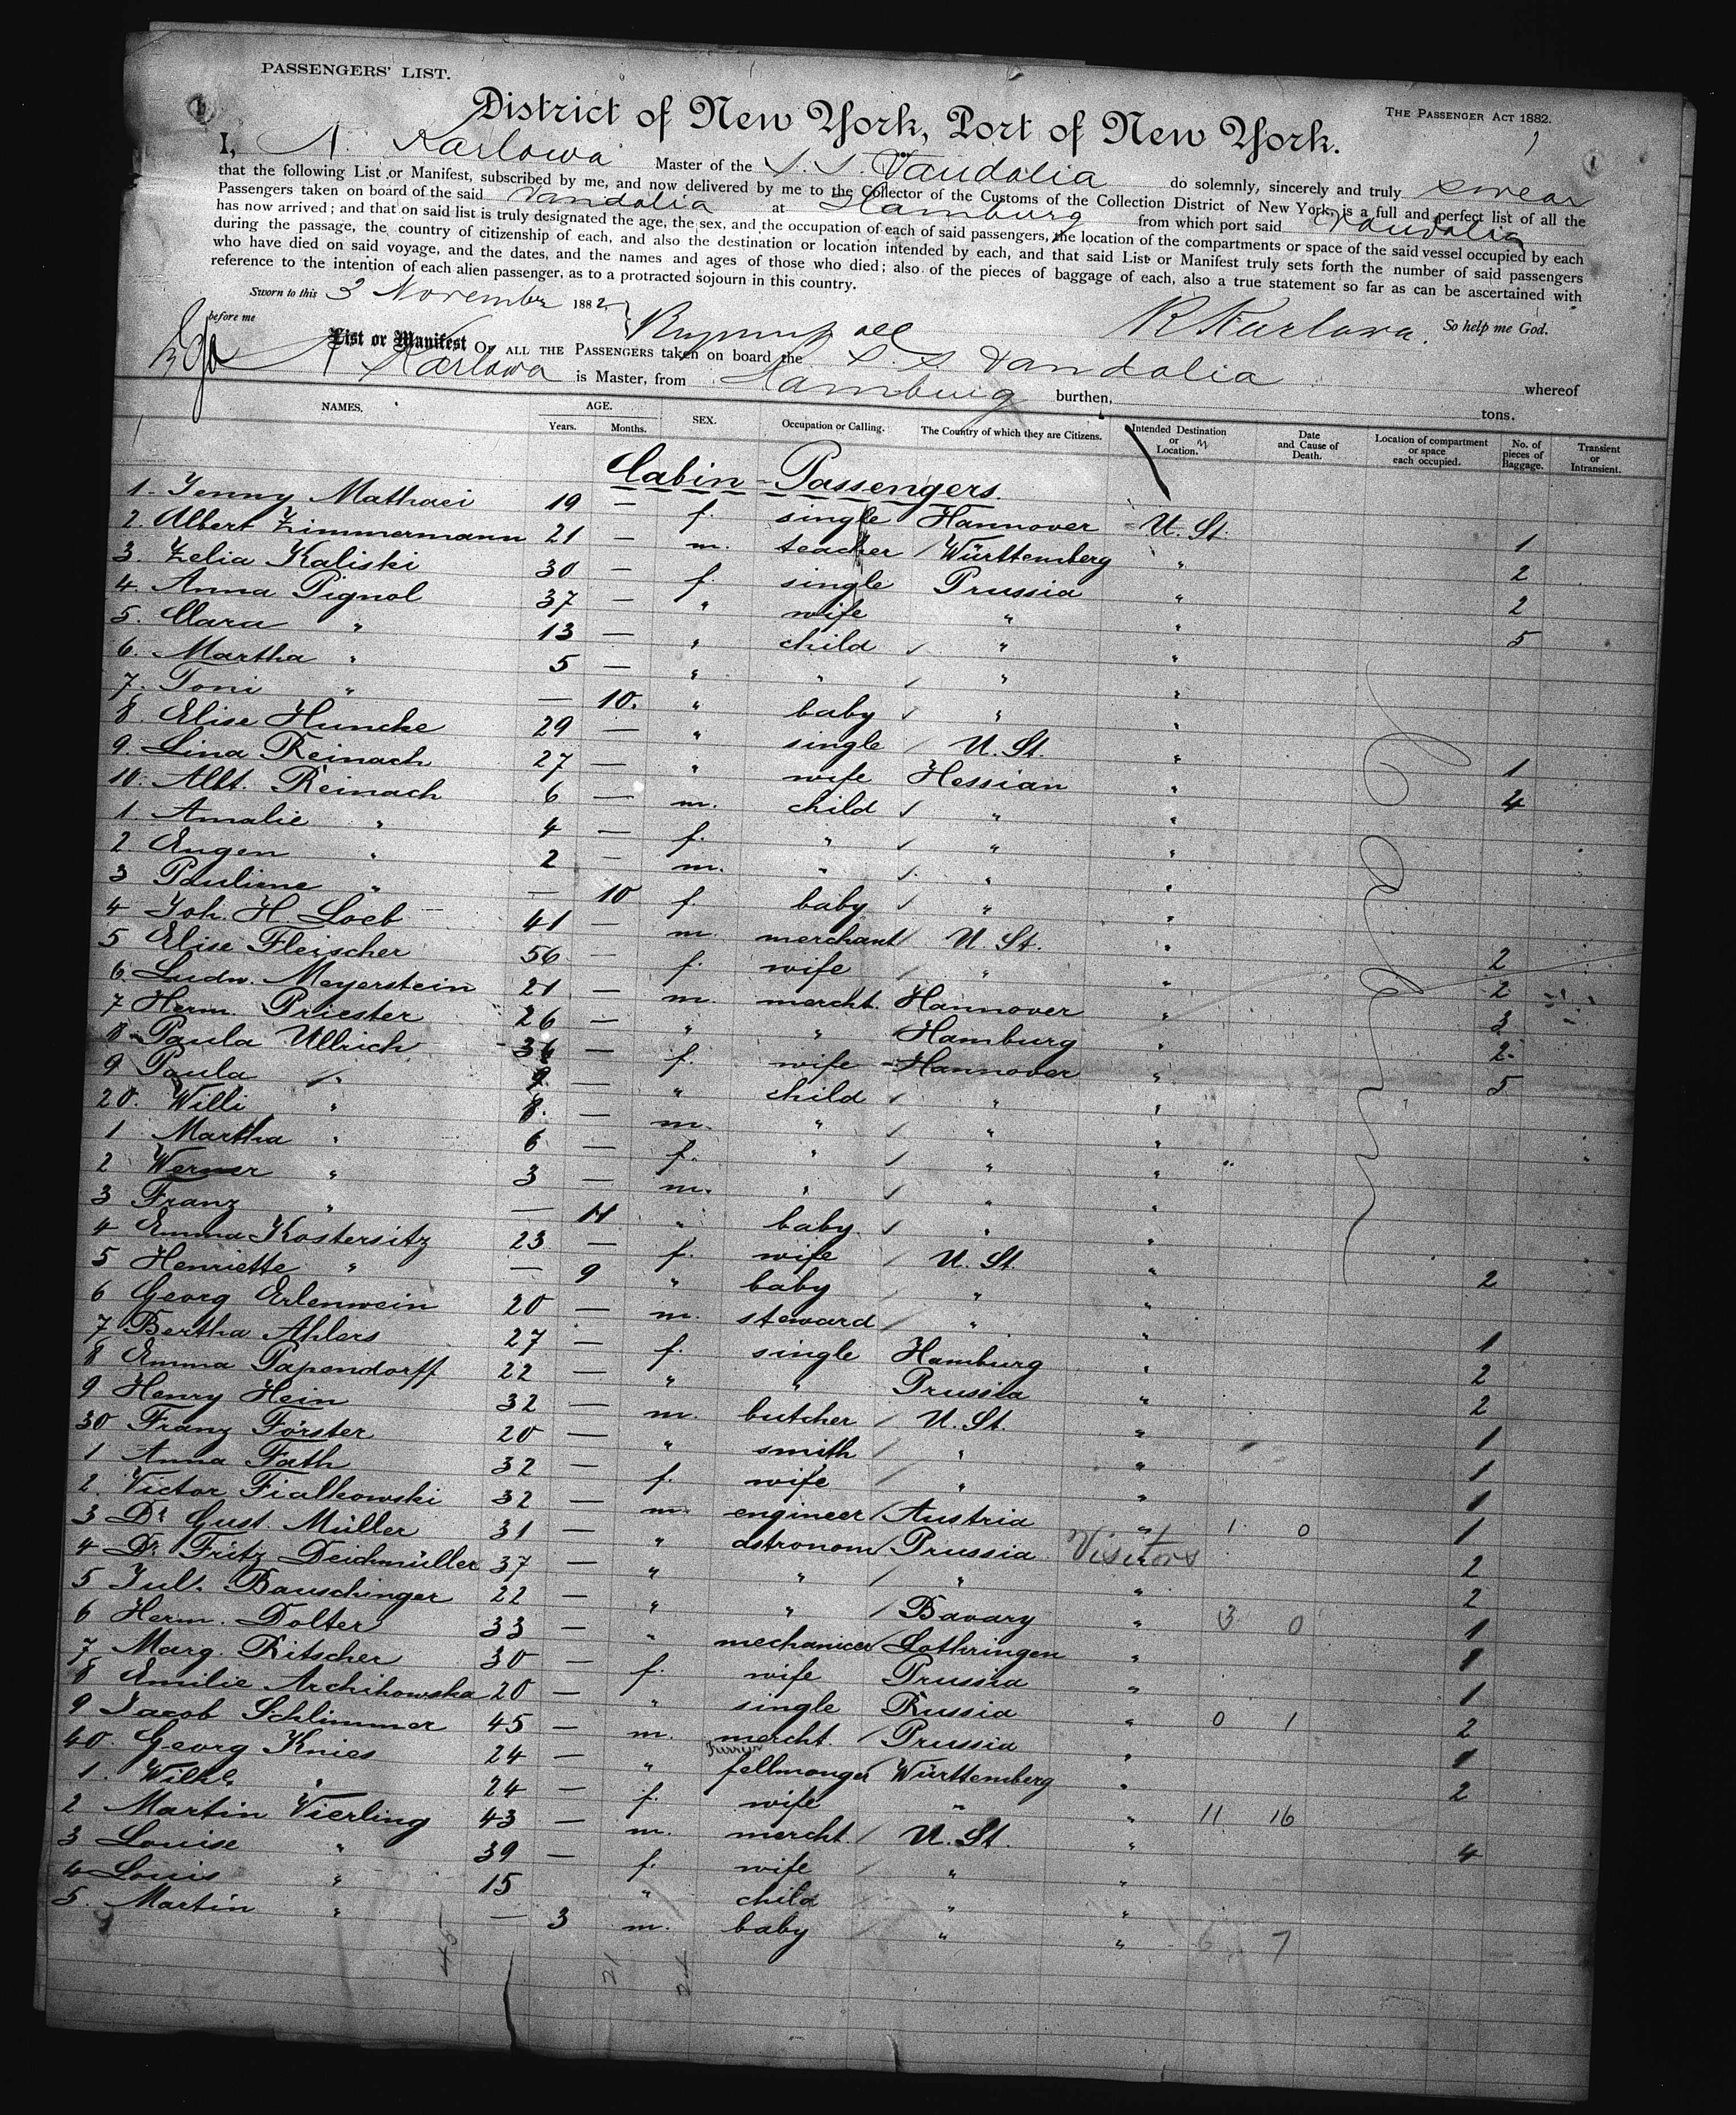 PASSENGERS' LIST.
THE PASSENGER ACT 1882.
District of New York, Port of New York.
I, Karlowa Master of the S. S. Vandalia do solemnly, sincerely and truly swear
that the following List or Manifest, subscribed by me, and now delivered by me to the Collector of the Customs of the Collection District of New York, is a full and perfect list of all the
Passengers taken on board of the said Vandalia at Hamburg from which port said Vandalia
has now arrived; and that on said list is truly designated the age, the sex, and the occupation of each of said passengers, the location of the compartments or space of the said vessel occupied by each
during the passage, the country of citizenship of each, and also the destination or location intended by each, and that said List or Manifest truly sets forth the number of said passengers
who have died on said voyage, and the dates, and the names and ages of those who died; also of the pieces of baggage of each, also a true statement so far as can be ascertained with
reference to the intention of each alien passenger, as to a protracted sojourn in this country.
Sworn to this 3 November 1882
before me
R Karlowa. So help me God.
List or Manifest OF ALL THE PASSENGERS taken on board the S. S. Vandalia whereof
Karlowa is Master, from Hamburg burthen, tons.
NAMES. AGE. Years. Months. SEX. Occupation or Calling. The Country of which they are Citizens. Intended Destination or Location. Date and Cause of Death. Location of compartment or space each occupied. No. of pieces of Baggage. Transient or Intransient.
Cabin-Passengers.
1. Jenny Mathaei 19 — f. single Hannover U. St. 1
2. Albert Zimmermann 21 — m. teacher Württemberg " 2
3. Zelia Kaliski 30 — f. single Prussia " 2
4. Anna Pignol 37 — " wife " " 5
5. Clara " 13 — " child " "
6. Martha " 5 — " " " "
7. Toni " — 10. " baby " "
8. Elise Huncke 29 — " single U. St. " 1
9. Lina Reinach 27 — " wife Hessian " 4
10. Albt. Reinach 6 — m. child " "
1 Amalie " 4 — f. " " "
2 Eugen " 2 — m. " " "
3 Pauline " — 10 f. baby " "
4 Joh. H. Loeb 41 — m. merchant U. St. " 2
5 Elise Fleischer 56 — f. wife " " 2
6 Ludw. Meyerstein 21 — m. mercht. Hannover " 3
7 Herm. Priester 26 — " " Hamburg " 2
8 Paula Ullrich 36 — f. wife Hannover " 5
9 Paula " 9 — " child " "
20. Willi " 8. — m. " " "
1 Martha " 6 — f. " " "
2 Werner " 3 — m. " " "
3 Franz " — 11 " baby " "
4 Emma Kostersitz 23 — f. wife U. St. " 2
5 Henriette " — 9 " baby " "
6 Georg Erlenwein 20 — m. steward " " 1
7 Bertha Ahlers 27 — f. single Hamburg " 2
8 Emma Papendorff 22 — " " Prussia " 2
9 Henry Hein 32 — m. butcher U. St. " 1
30 Franz Förster 20 — " smith " " 1
1 Anna Fath 32 — f. wife " " 1
2. Victor Fialkowski 32 — m. engineer Austria " 1 0 1
3 Dr. Gust. Müller 31 — " astronom Prussia Visitors 2
4 Dr. Fritz Deichmüller 37 — " " " " 2
5 Jul. Bauschinger 22 — " " Bavary " 3 0 1
6 Herm. Dolter 33 — " mechanicer Lothringen " 1
7 Marg. Ritscher 30 — f. wife Prussia " 1
8 Emilie Archikowska 20 — " single Russia " 0 1 2
9 Jacob Schlimmer 45 — m. mercht. Prussia " 1
40. Georg Knies 24 — " fellmonger Württemberg " 2
1. Wilh. " 24 — f. wife " " 11 16
2 Martin Vierling 43 — m. mercht U. St. " 4
3 Louise " 39 — f. wife " "
4 Louis " 15 " child " "
5. Martin " — 3 m. baby " " 6 7
45 21 24